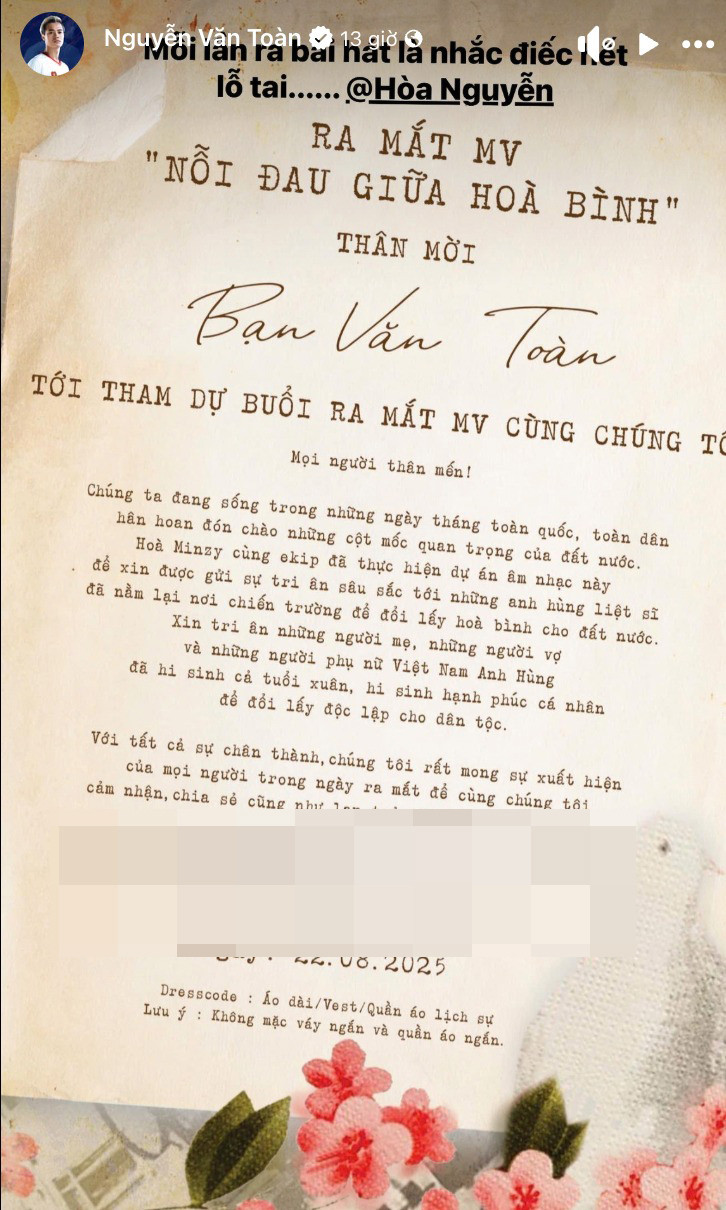 Nguyễn Văn Toàn 13 giờ
Mỗi lần ra bài hát là nhắc điếc hết
lỗ tai...... @Hòa Nguyễn
RA MẮT MV
"NỖI ĐAU GIỮA HOÀ BÌNH"
THÂN MỜI
Bạn Văn Toàn
TỚI THAM DỰ BUỔI RA MẮT MV CÙNG CHÚNG
Mọi người thân mến!
Chúng ta đang sống trong những ngày tháng toàn quốc, toàn dân
hân hoan đón chào những cột mốc quan trọng của đất nước.
Hoà Minzy cùng ekip đã thực hiện dự án âm nhạc này
để xin được gửi sự tri ân sâu sắc tới những anh hùng liệt sĩ
đã nằm lại nơi chiến trường để đổi lấy hoà bình cho đất nước.
Xin tri ân những người mẹ, những người vợ
và những người phụ nữ Việt Nam Anh Hùng
đã hi sinh cả tuổi xuân, hi sinh hạnh phúc cá nhân
để đổi lấy độc lập cho dân tộc.
Với tất cả sự chân thành,chúng tôi rất mong sự xuất hiện
của mọi người trong ngày ra mắt để cùng chúng tôi
cảm nhận,chia sẻ cũng như
22.08.2025
Dresscode : Áo dài/Vest/Quần áo lịch sự
Lưu ý : Không mặc váy ngắn và quần áo ngắn.